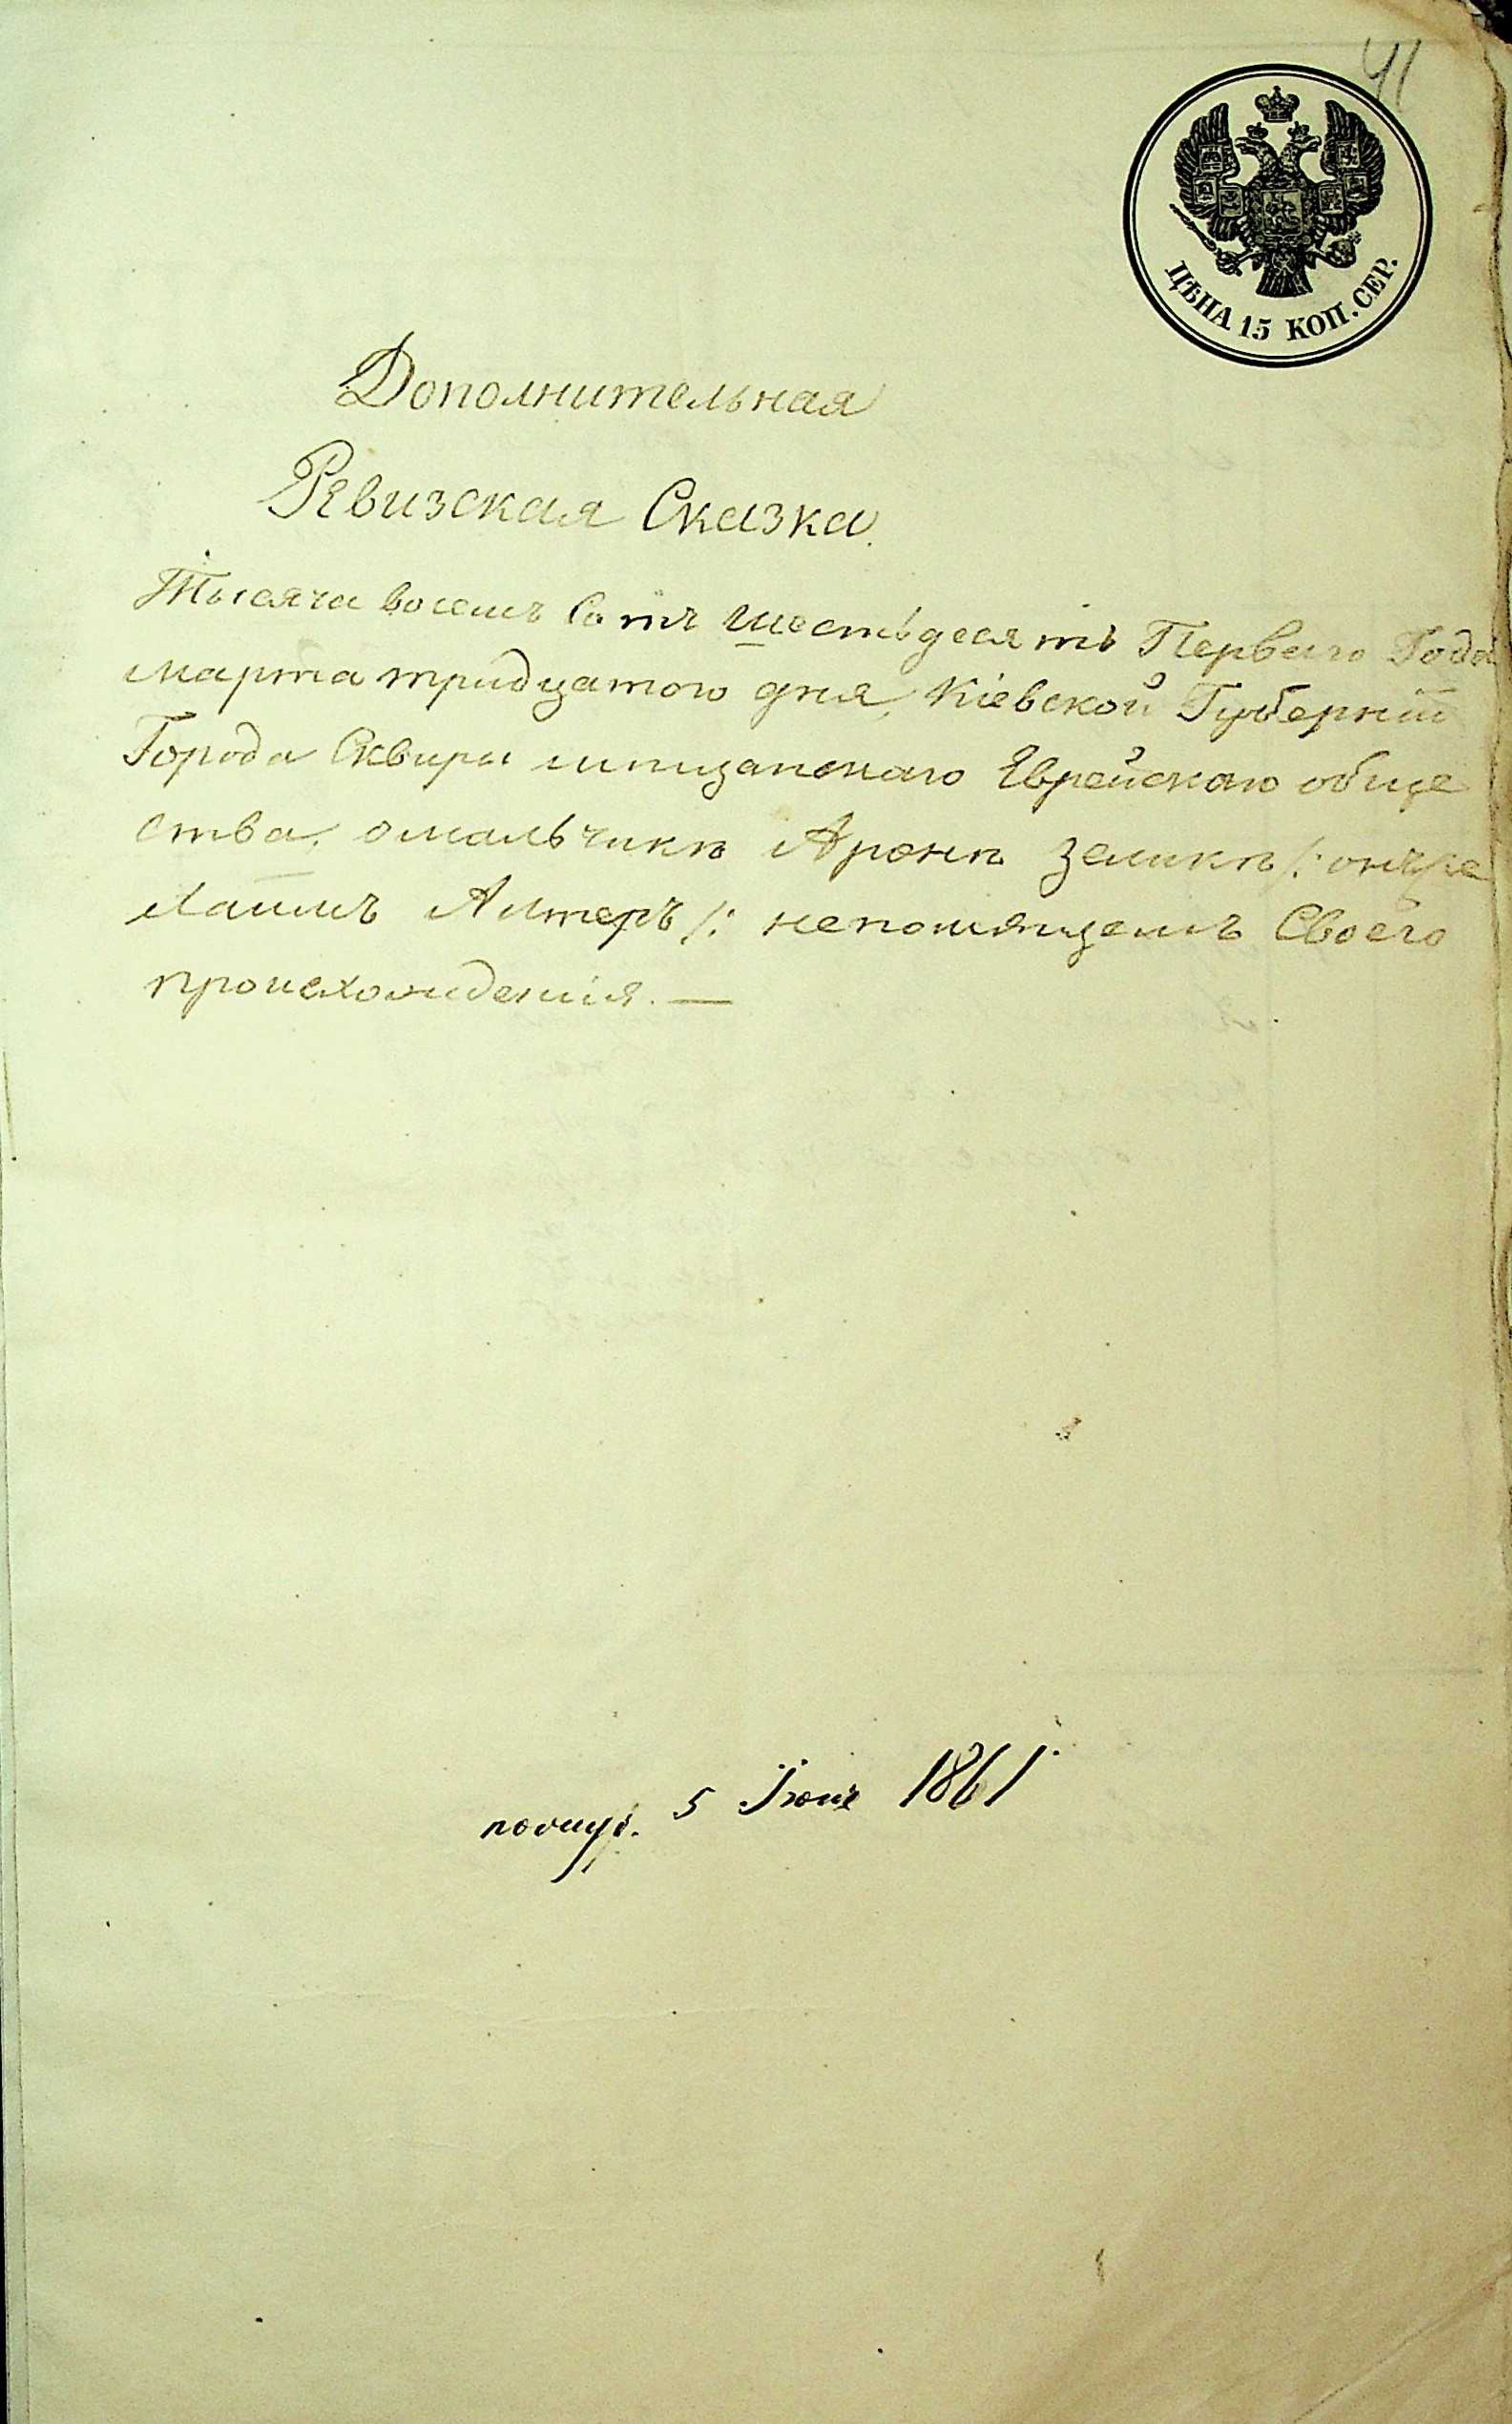 41
ЦѢНА 15 КОП. СЕР.
Дополнительная
Ревизская Сказка.
Тысяча восемъ Сотъ шестьдесятъ Перваго Года
марта тридцатого дня, Кіевской Губерніи
Города Сквиры мищанскаго Еврейскаго обще
ства, омальчикѣ Аронѣ Зеликѣ /: онъже
Хаимъ Алтеръ /: непомнящемъ Своего
происхожденія. —
получ. 5 Іюня 1861